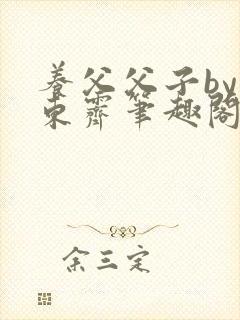 养父父子by
东霽笔趣阁
余三定